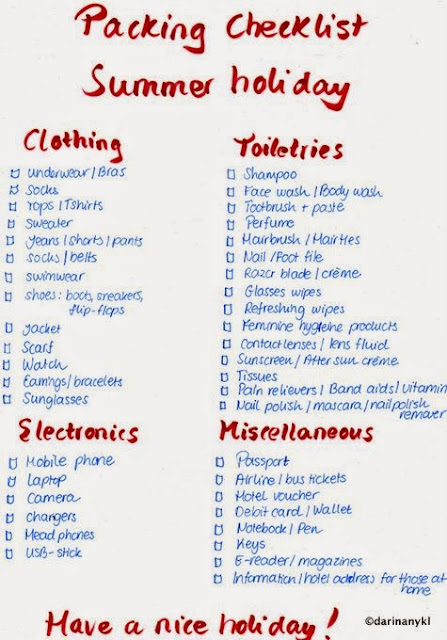 Packing Checklist
Summer holiday
Clothing
underwear / Bras
socks
Tops / Tshirts
sweater
jeans / shorts / pants
socks / belts
swimwear
shoes: boots, sneakers,
flip-flops
jacket
scarf
Watch
Earrings / bracelets
Sunglasses
Toiletries
Shampoo
Face wash / Body wash
Tootbrush + paste
Perfume
Hairbrush / Hairties
Nail / Foot file
Razor blade / crème
Glasses wipes
Refreshing wipes
Feminine hygïene products
Contactlenses / lens fluid
Sunscreen / After sun crème
Tissues
Pain relievers / Band aids / vitamin
Nail polish / mascara / nailpolish
remover
Electronics
Mobile phone
Laptop
Camera
Chargers
Headphones
USB-stick
Miscellaneous
Passport
Airline / bus tickets
Hotel voucher
Debit card / Wallet
Notebook / Pen
Keys
E-reader / magazines
Information / hotel address for those at
home
Have a nice holiday!
©darinanykl